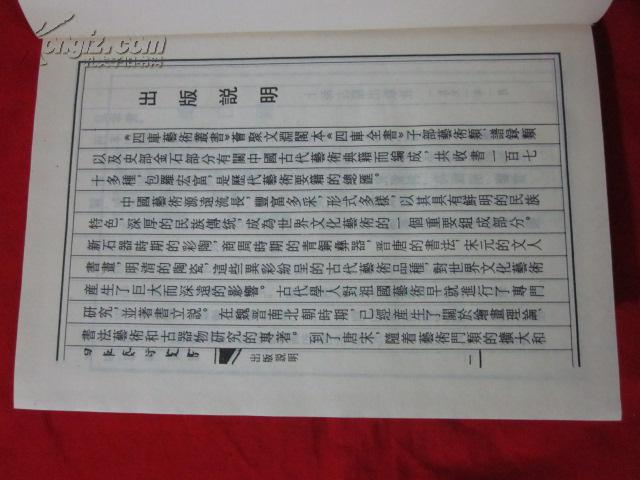 出版説明
《四庫藝術叢書》會聚文淵閣本《四庫全書》子部藝術類、譜録類
以及史部金石部分有關中國古代藝術典籍而編成，共收書一百七
十多種，包羅宏富，是歷代藝術要籍的總匯。
中國藝術源遠流長，豐富多采，形式多樣，以其具有鮮明的民族
特色，深厚的民族傳統，成為世界文化藝術的一個重要組成部分。
新石器時期的彩陶，商周時期的青銅彝器，晉唐的書法，宋元的文人
書畫，明清的陶瓷，這些異彩紛呈的古代藝術品種，對世界文化藝術
產生了巨大而深遠的影響。古代學人對祖國藝術早就進行了專門
研究，並著書立説。在魏晉南北朝時期，已經產生了關於繪畫理論、
書法藝術和古器物研究的專著。到了唐宋，隨着藝術門類的擴大和
出版説明
一
kongfz.com